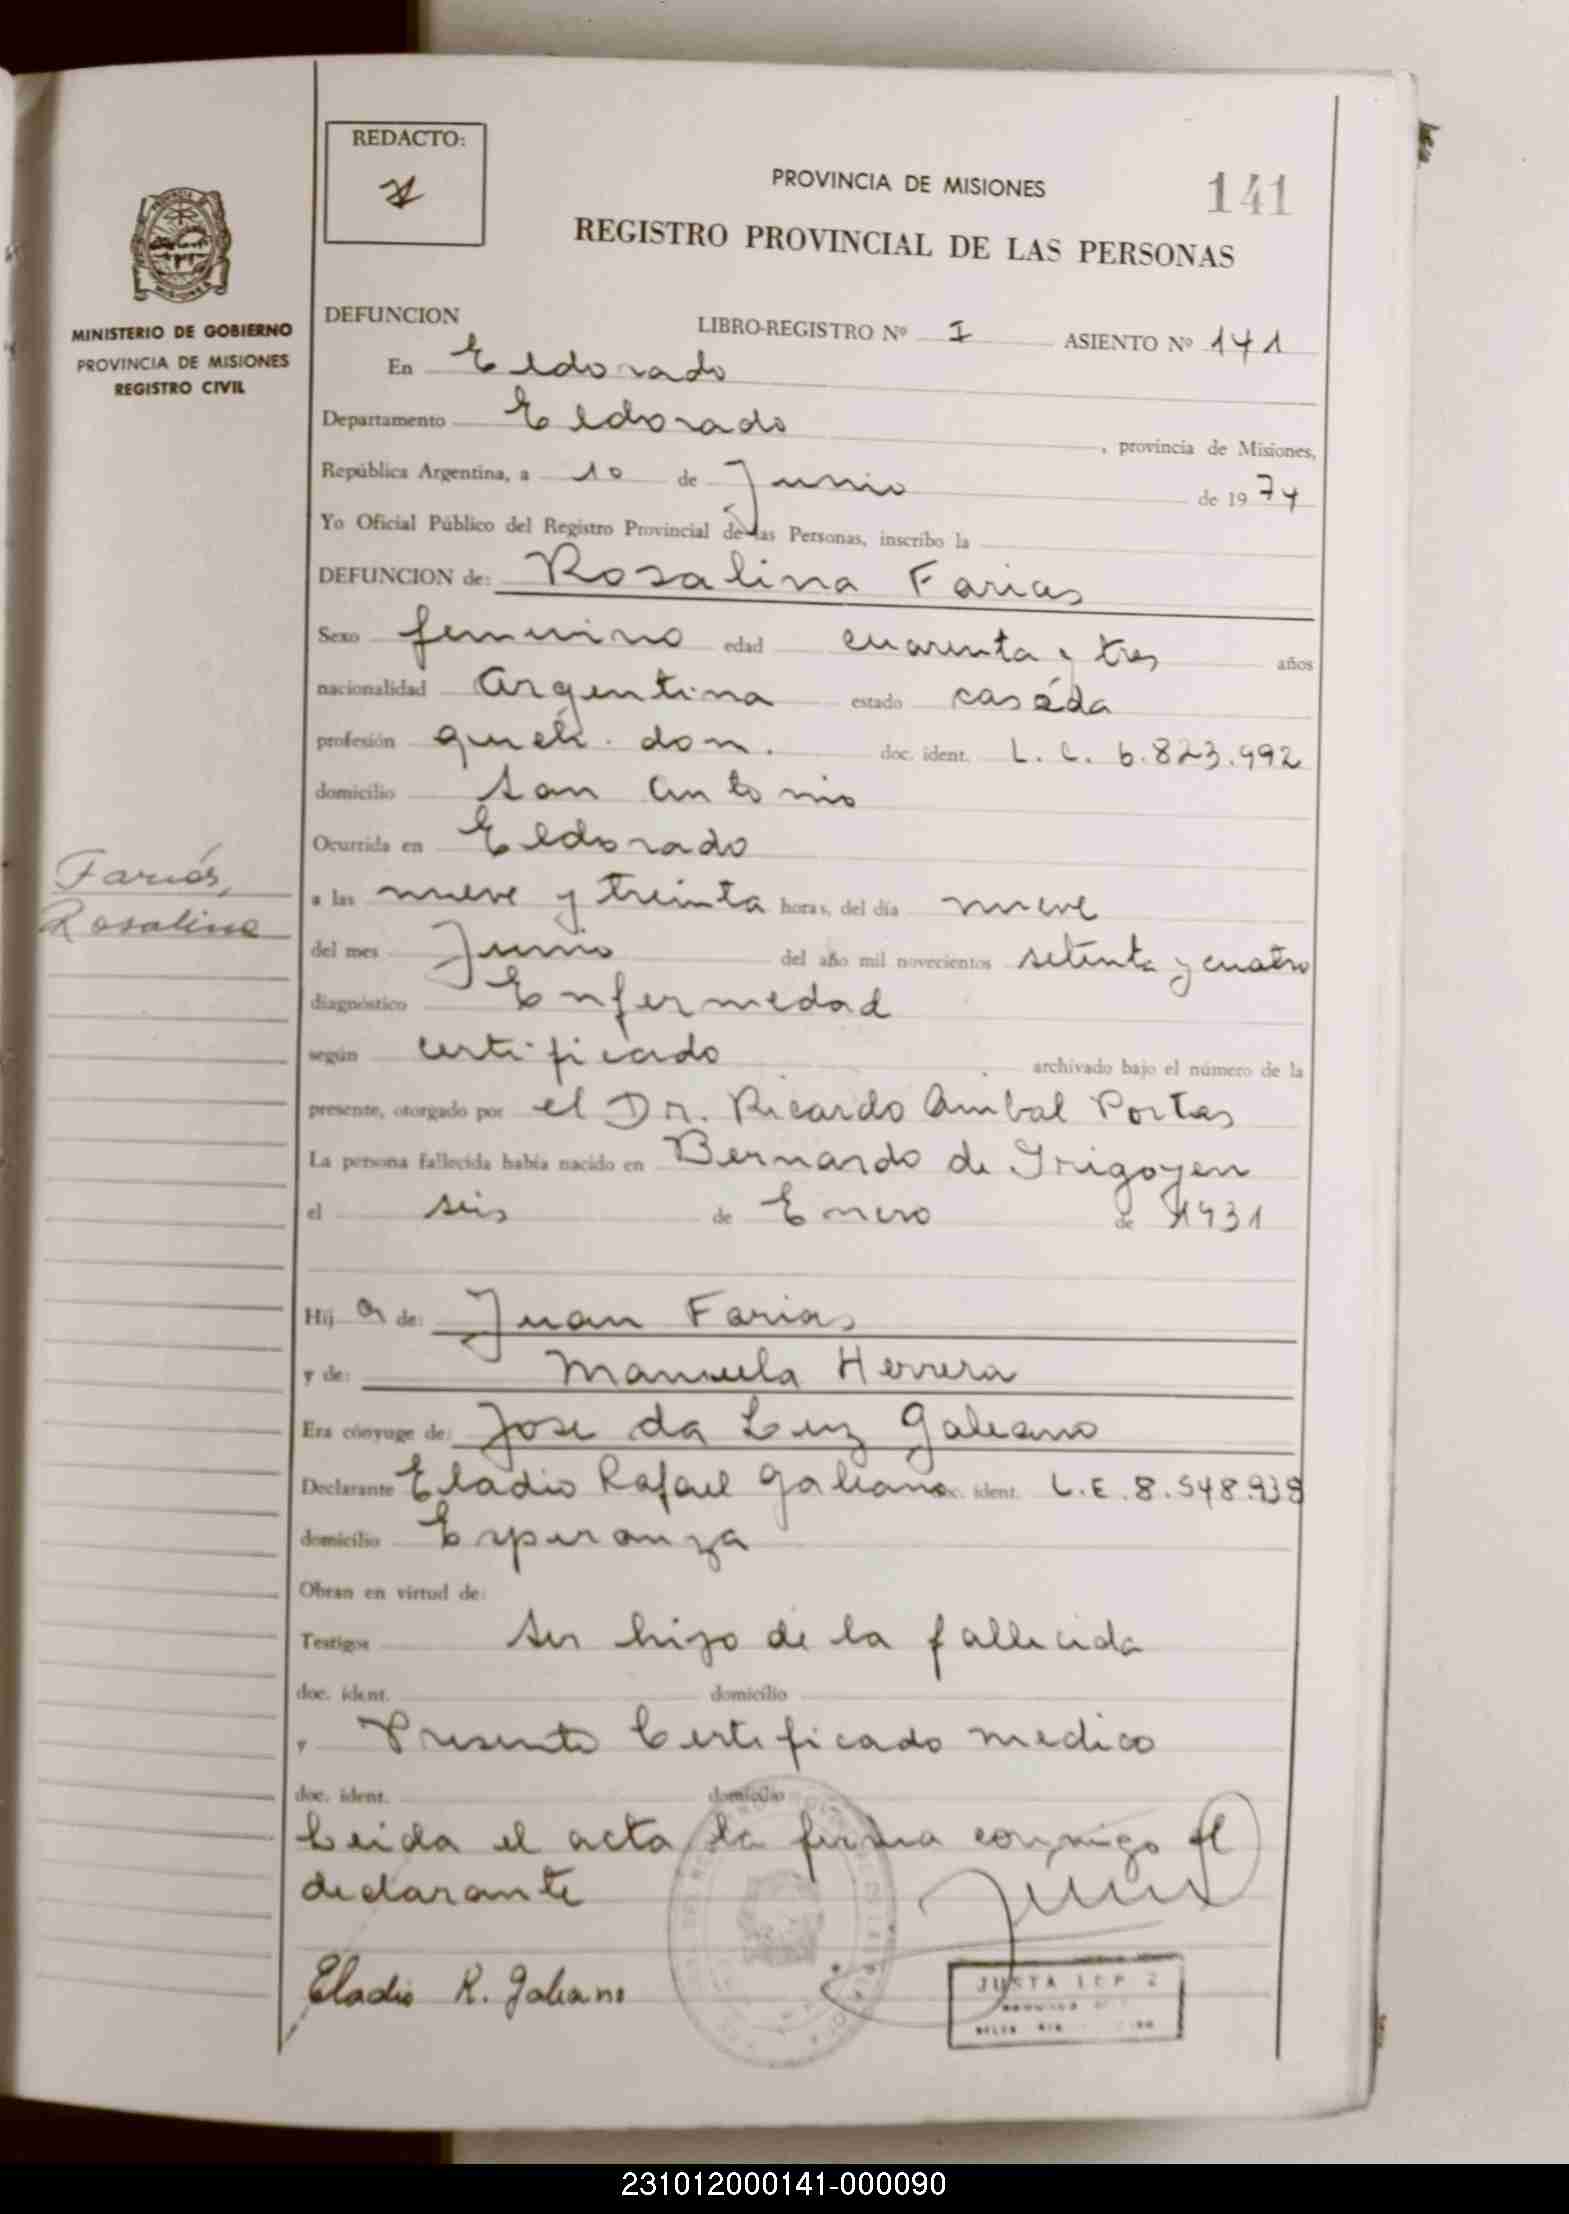 REDACTO:
PROVINCIA DE MISIONES
141
REGISTRO PROVINCIAL DE LAS PERSONAS
MINISTERIO DE GOBIERNO
PROVINCIA DE MISIONES
REGISTRO CIVIL
DEFUNCION
LIBRO-REGISTRO Nº I ASIENTO Nº 141
En Eldorado
Departamento Eldorado, provincia de Misiones,
República Argentina, a 10 de Junio de 1974
Yo Oficial Público del Registro Provincial de las Personas, inscribo la
DEFUNCION de: Rosalina Farias
Sexo femenino edad cuarenta y tres años
nacionalidad Argentina estado casada
profesión queh. dom. doc. ident. L. C. 6.823.992
domicilio San Antonio
Ocurrida en Eldorado
Farias,
Rosalina
a las nueve y treinta horas, del día nueve
del mes Junio del año mil novecientos setenta y cuatro
diagnóstico Enfermedad
según certificado archivado bajo el número de la
presente, otorgado por el Dr. Ricardo Anibal Portas
La persona fallecida había nacido en Bernardo de Irigoyen
el seis de Enero de 1931
Hij a de: Juan Farias
y de: Manuela Herrera
Era cónyuge de: Jose da Luz Galeano
Declarante Eladio Rafael Galeano doc. ident. L.E. 8.548.939
domicilio Esperanza
Obran en virtud de:
Testigos ser hijo de la fallecida
doc. ident. domicilio
y Presento Certificado medico
doc. ident. domicilio
Leida el acta, la firma conmigo el
declarante
Eladio R. Galeano
JUSTA
231012000141-000090